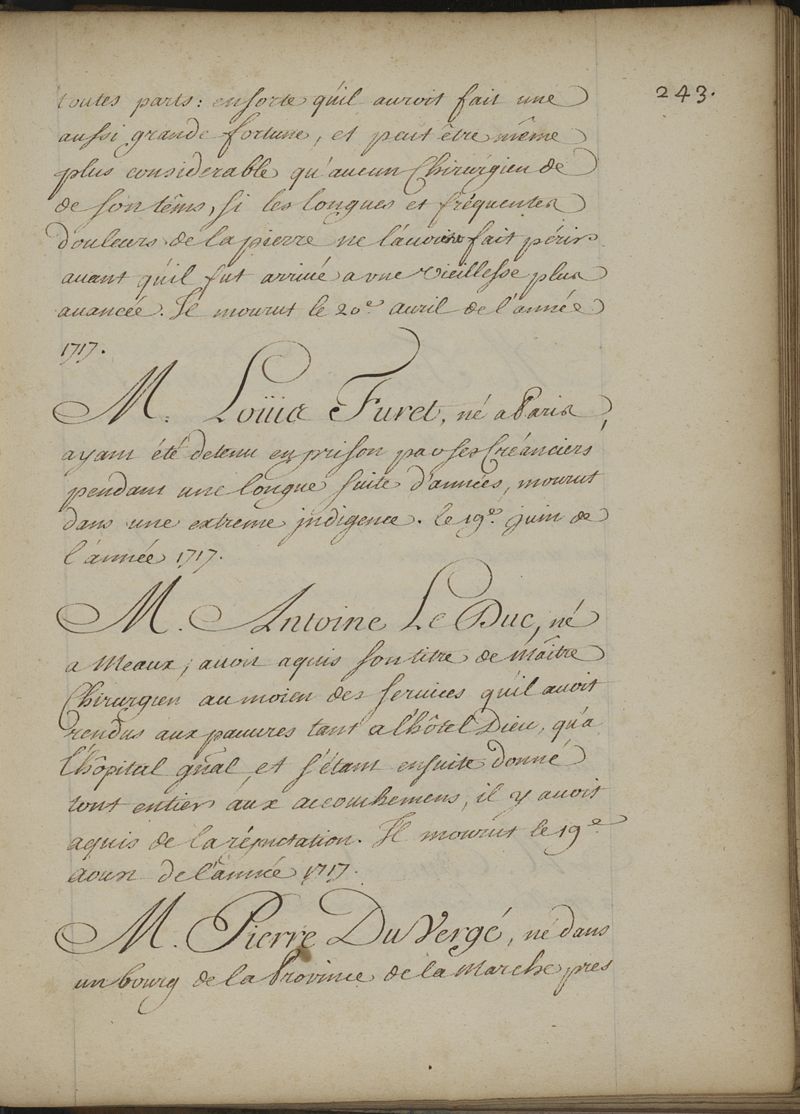 243.
toutes parts: ensorte qu'il auroit fait une
aussi grande fortune, et peut être même
plus considerable qu'aucun Chirurgien de
de son têms, si les longues et fréquentes
douleurs de la pierre ne l'avoient fait périr
auant qu'il fut arriué a vne vieillesse plus
auancée. Il mourut le 20e. auril de l'année
1717.
M. Loüis Furet, né a Paris,
ayant été detenu en prison par ses Créanciers
pendant une longue suite d'années, mourut
dans une extreme jndigence. le 19e. juin de
l'année 1717.
M. Antoine Le Duc, né
a Meaux, avoit aquis son titre de maître
Chirurgien au moien des services qu'il avoit
rendus aux pauures tant a l'hôtel Dieu, qu'a
l'hôpital gñal, et s'étant ensuite donné
tout entier aux accouchemens, il y auoit
aquis de la réputation. Il mourut le 19e.
aoust de l'année 1717.
M. Pierre Du Vergé, né dans
un bourg de la Province de la Marche pres